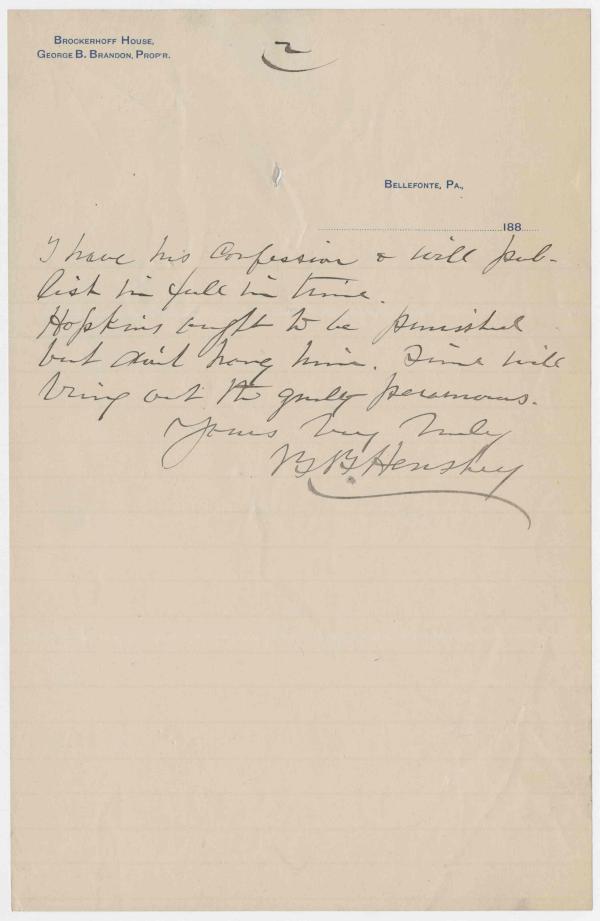 Brockerhoff House,
George B. Brandon, Prop'r.
2
Bellefonte, Pa.,
188
I have his Confession & will pub-
lish in full in time.
Hopkins ought to be punished
but don't hang him. Time will
bring out the guilty paramours.
Yours very truly
B. B. Henshey